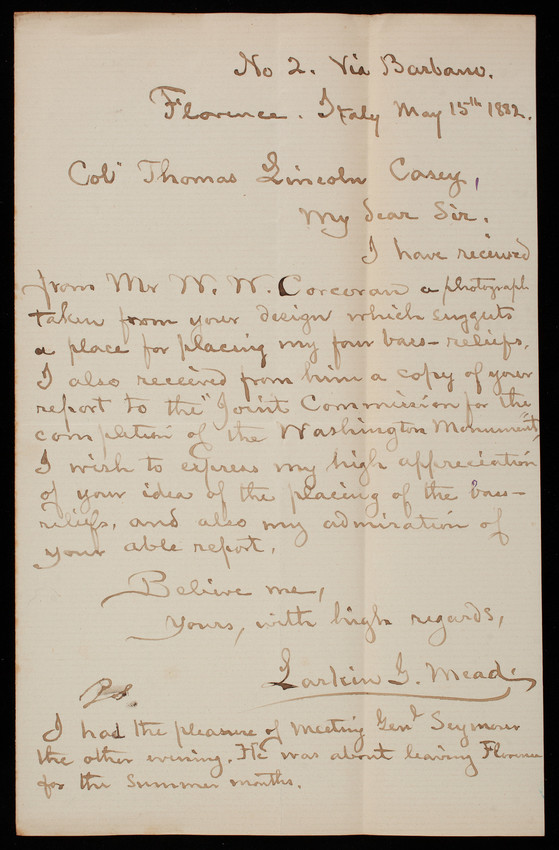 No 2. Via Barbano.
Florence. Italy May 15th 1882.
Col Thomas Lincoln Casey,
My dear Sir.
I have received
from Mr W. W. Corcoran a photograph
taken from your design which suggests
a place for placing my four bass-reliefs.
I also received from him a copy of your
report to the "Joint Commission for the
completion of the Washington Monument",
I wish to express my high appreciation
of your idea of the placing of the bass-
reliefs, and also my admiration of
your able report.
Believe me,
Yours, with high regards,
Larkin G. Mead.
Ps.
I had the pleasure of meeting Genl Seymour
the other evening. He was about leaving Florence
for the summer months.